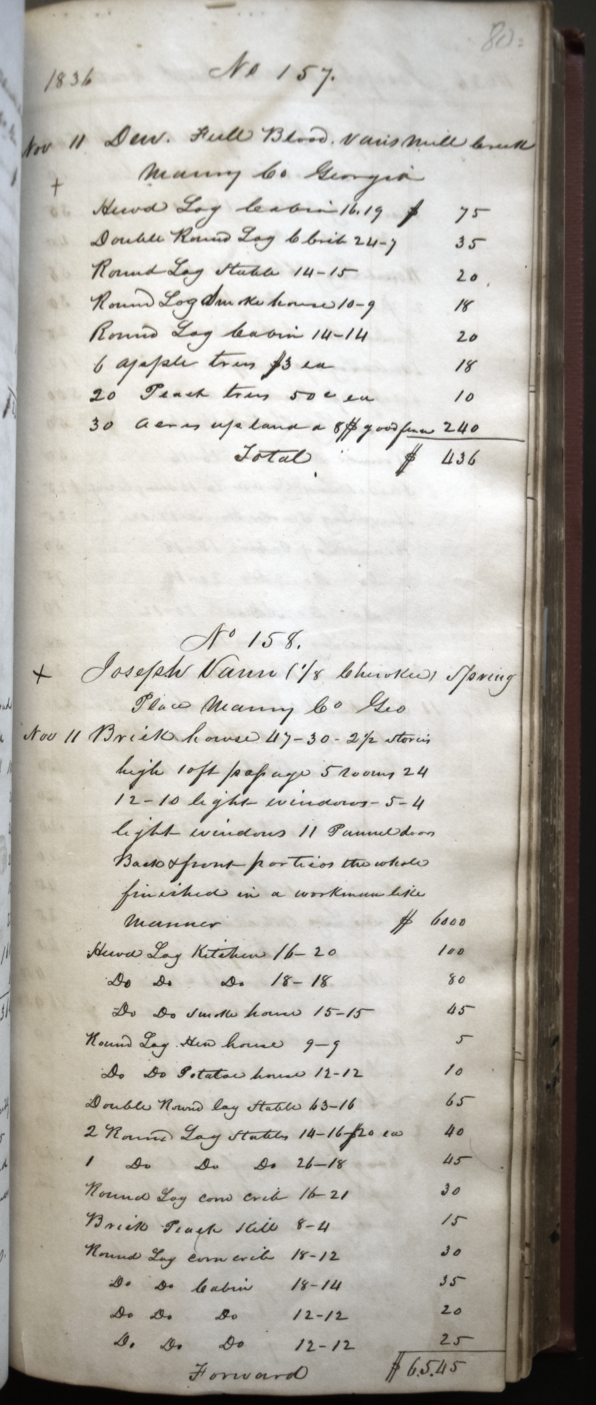 80.
1836 No 157.
Nov 11 Dew. Full Blood. Vans Mill Creek
+ Murry Co Georgia
Hewd Log Cabin 16.19 $ 75
Double Round Log Cbrib 24-7 35
Round Log Stable 14-15 20
Round Log Smoke house 10-9 18
Round Log Cabin 14-14 20
6 apple trees $3 ea 18
20 Peach trees 50c ea 10
30 Acres upland a 8$ good fence 240
Total $ 436
No 158.
+ Joseph Vann (1/8 Cherokee) Spring
Place Murry Co Geo
Nov 11 Brick house 47-30-2 1/2 stories
high 10ft passage 5 rooms 24
12-10 light windows-5-4
light windows 11 Pannel doors
Back & front porticos the whole
finished in a workman like
manner $ 6000
Hewd Log Kitchen 16-20 100
Do Do Do 18-18 80
Do Do smoke house 15-15 45
Round Log Hen house 9-9 5
Do Do Potatoe house 12-12 10
Double Round log Stable 63-16 65
2 Round Log Stables 14-16 $20 ea 40
1 Do Do Do 26-18 45
Round Log corn crib 16-21 30
Brick Peach Kill 8-4 15
Round Log corn crib 18-12 30
Do Do Cabin 18-14 35
Do Do Do 12-12 20
Do Do Do 12-12 25
Forward $ 6545